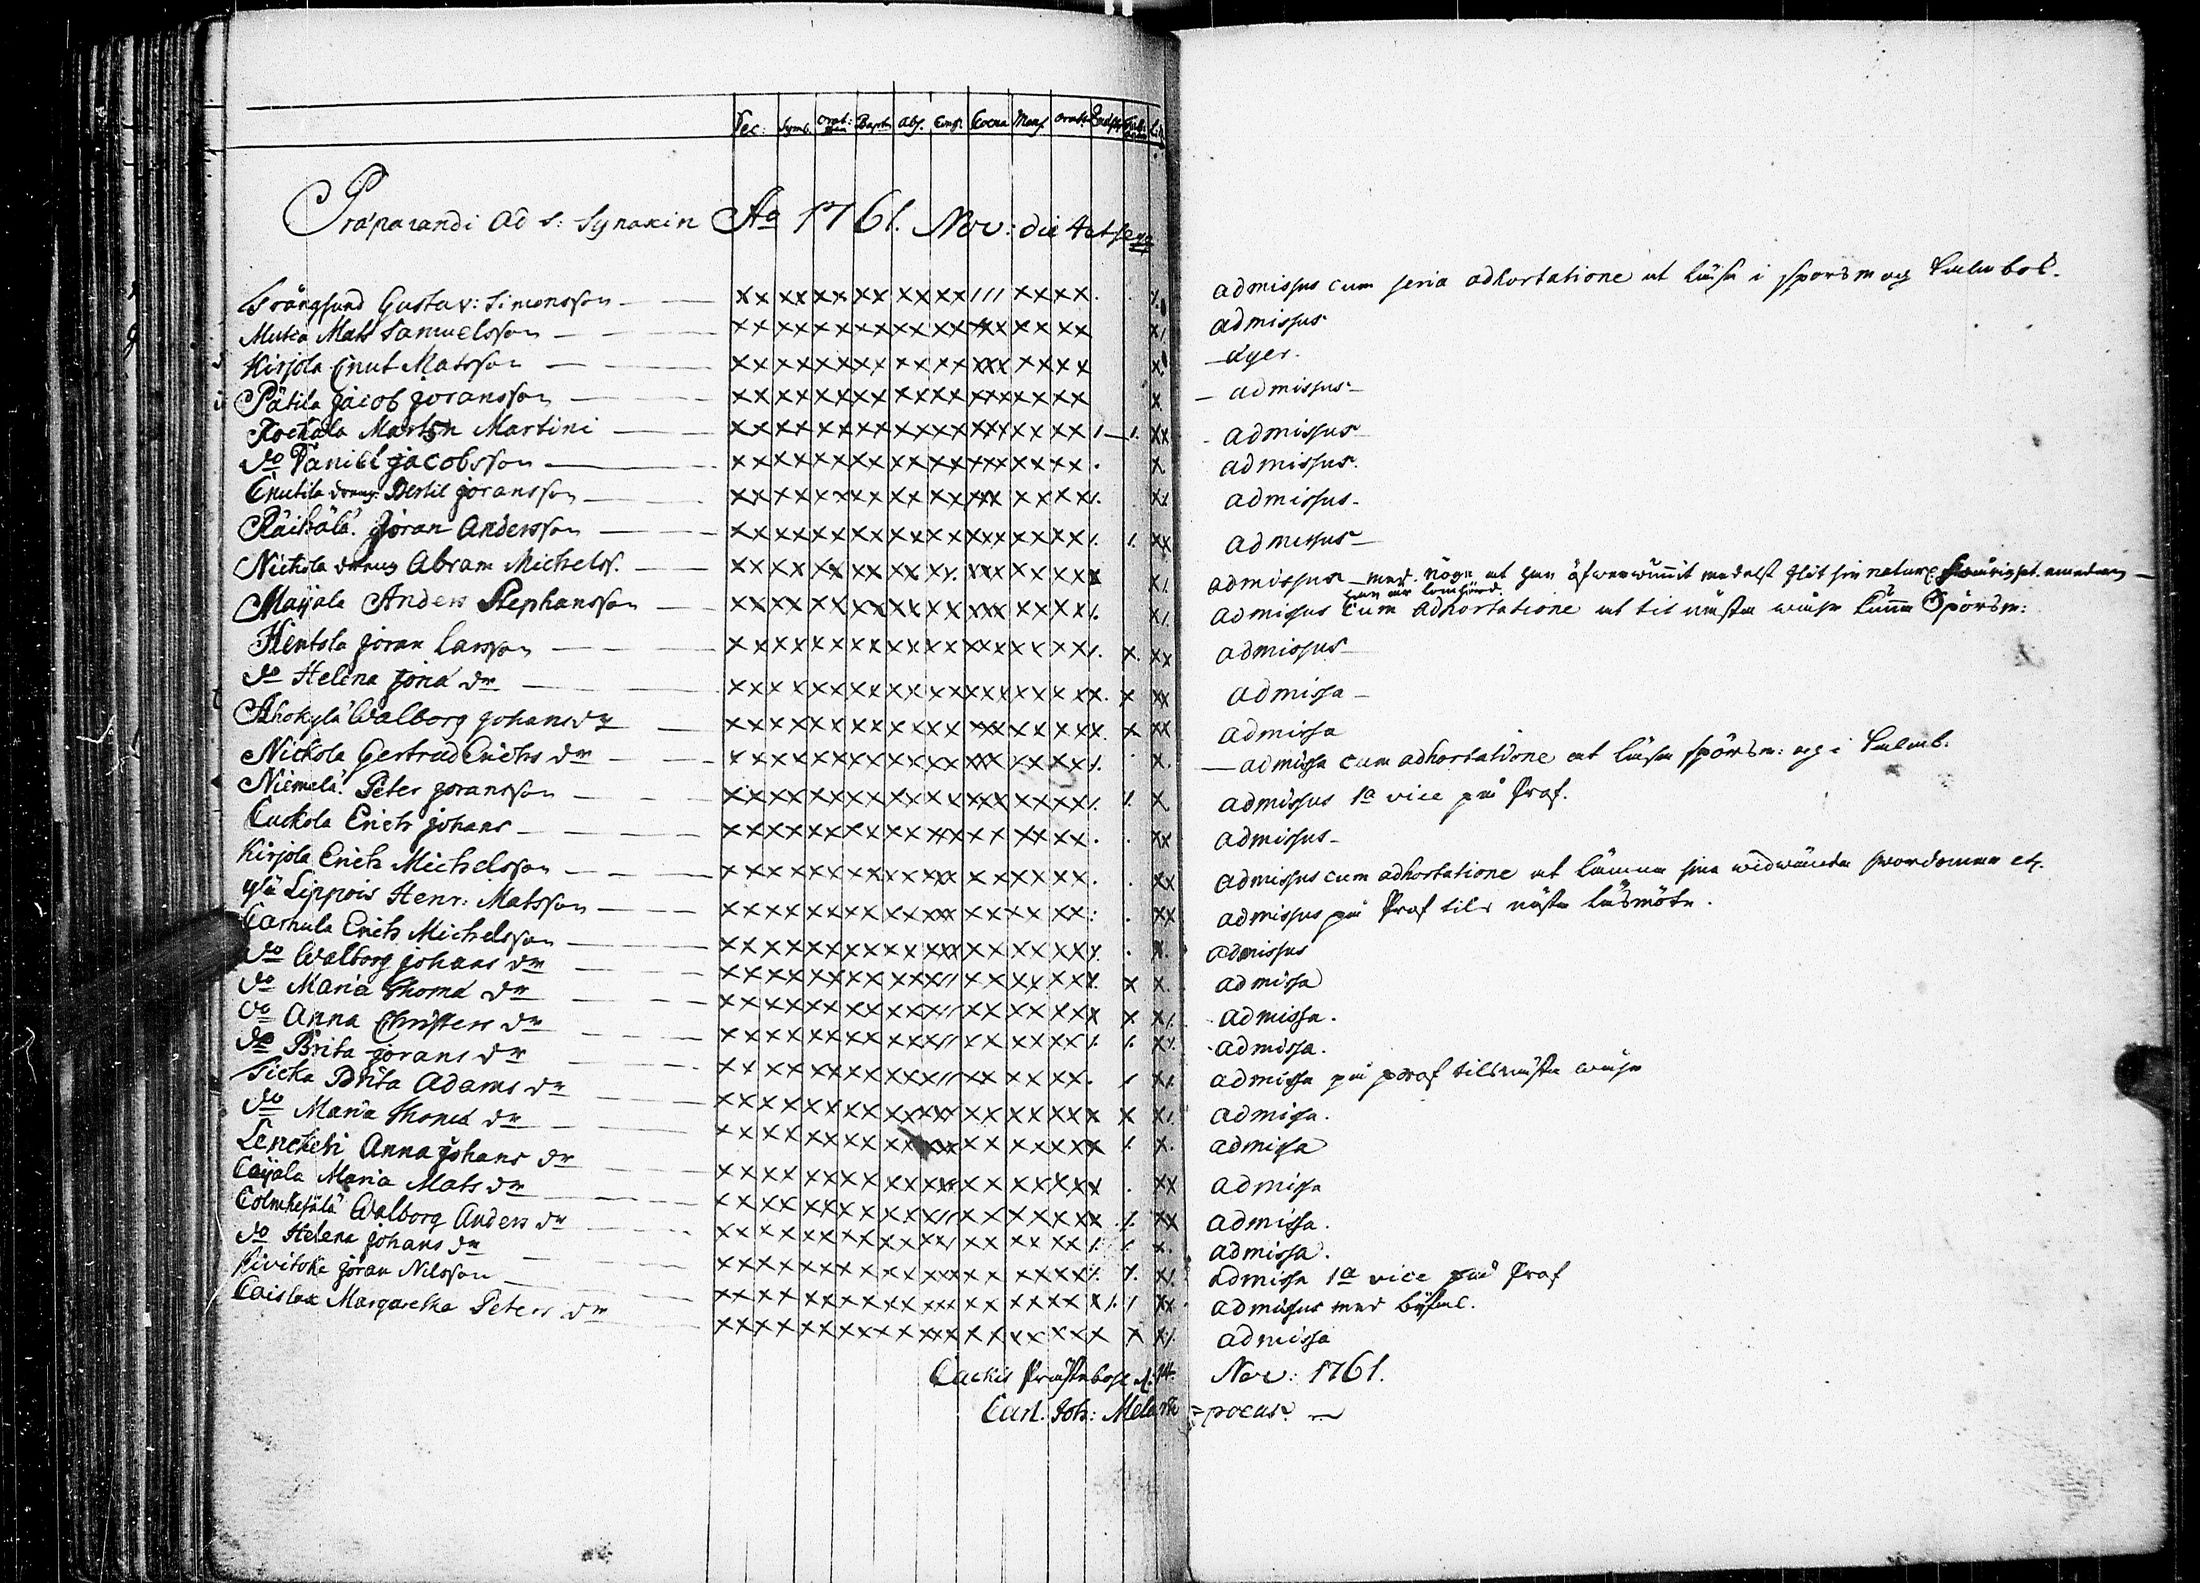 Dec: Symb. Orat: Dom Bapt: Abs. Conf. Coena Mens. Orat:
Præparandi ad S: Synaxin Ao 1761. Nov: die 4 et seqq
Strångsund Gustav: Simonsson — admissus cum seria adhortatione at läsa i spörsm og
Mutka Mats Samuelsson — admissus
Kirjola Cnut Matsson —
Pätilä Jacob Joransson — admissus
Kockala Marten Martini — admissus
do Daniel Jacobsson — admissus.
Cnutila dreng: Bertil Joransson — admissus
Räihälä. Joran Andersson — admissus
Nickola dreng Abram Michelss. — admissus — med nöge at han öfwerwunnit medelst flit sin naturl:
han är lomhörd.
Maijala Anders Stephansson — admissus cum adhortatione at til nästa kunna Spörsm:
Hentola Joran Larsson — admissus
do Helena Jona dr — admissa
Ahokylä Walborg Johansdr — admissa
Nickola Gertrud Erichs dr — admissa cum adhortatione at läsa spörsm: og i
Niemelä. Peter Joransson — admissus 1a vice på Prof.
Cuckola Erich Johans — admissus
Kirjola Erich Michelsson — admissus cum adhortatione at lämna sina
Ylä Lippois Henr: Matsson — admissus på Prof till nästa läsmöte.
Carhula Erich Michelsson — admissus
do Walborg Johans dr — admissa
do Maria Thoma dr — admissa.
do Anna Christers dr — admissa.
do Brita Jorans dr — admissa på prof till nästa
Sicka Brita Adams dr — admissa.
do Maria Thoma dr — admissa
Lenckeri Anna Johans dr — admissa
Caijala Maria Mats dr — admissa.
Colmkesälä Walborg Anders dr — admissa.
do Helena Johans dr — admissa 1a vice på Prof
Kivitoke Joran Nilsson — admissus med
Caislax Margaretha Peters dr — admissa
Nov: 1761.
Carl. Joh: Melartopoeus.